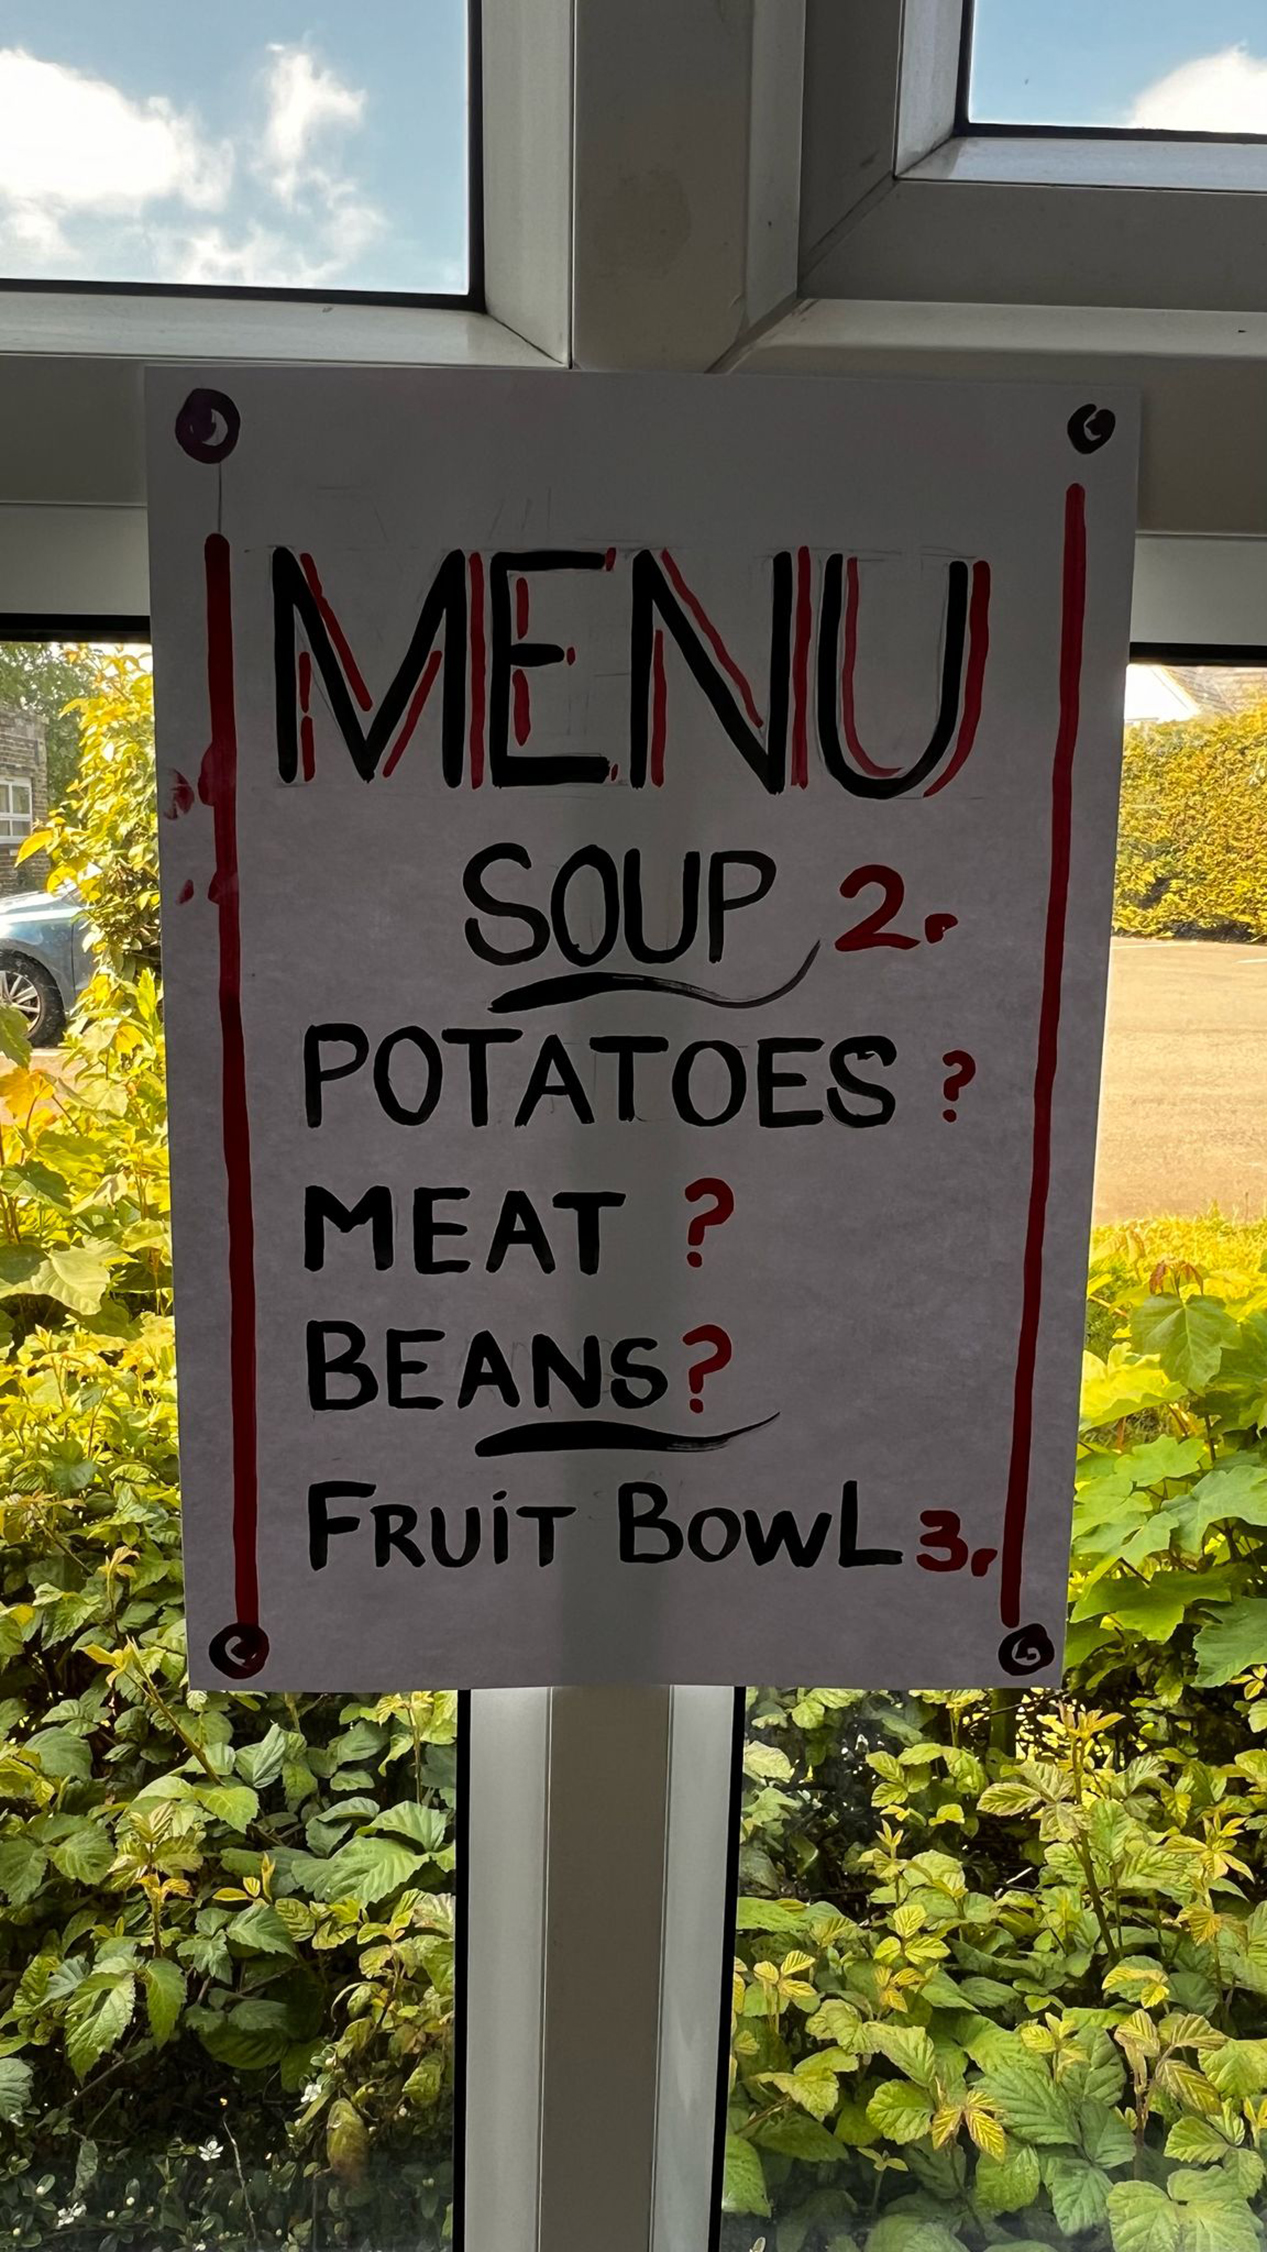 MENU
SOUP 2r
POTATOES ?
MEAT ?
BEANS?
FRUiT BOWL 3r